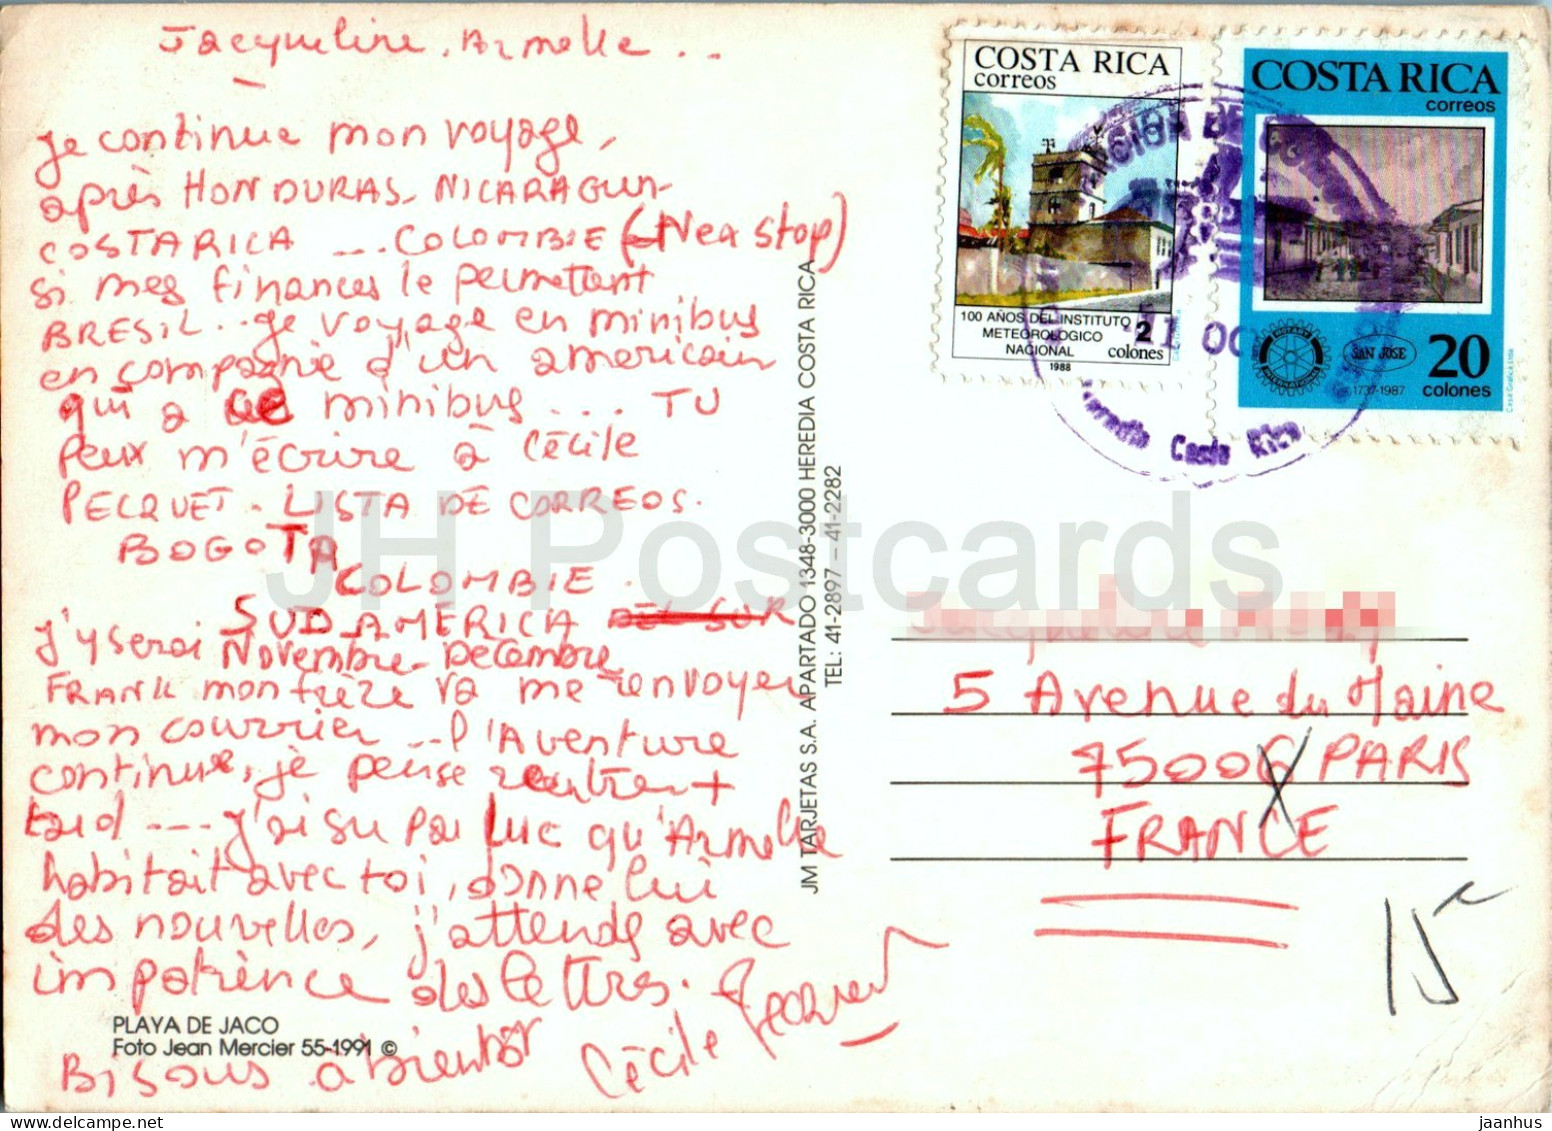 Jacqueline, Armelle ...
Je continue mon voyage,
après HONDURAS, NICARAGUA
COSTA RICA .... COLOMBIE (Nex Stop)
si mes finances le permettent
BRESIL... Je voyage en minibus
en compagnie d'un americain
qui a ce minibus .... TU
Peux m'écrire à Cécile
PECQUET. LISTA DE CORREOS.
BOGOTA
COLOMBIE.
SUD AMERICA DEL SUR
J'y serai Novembre-Decembre
FRANK mon frère va me renvoyer
mon courrier ... l'Aventure
continue, je pense rentrer +
tard .... j'ai su par Luc qu'Armelle
habitait avec toi, donne lui
des nouvelles, j'attends avec
impatience des lettres.
Bisous à bientôt Cécile
PLAYA DE JACO
Foto Jean Mercier 55-1991 ©
JM TARJETAS S.A. APARTADO 1348-3000 HEREDIA COSTA RICA
TEL: 41-2897 - 41-2282
COSTA RICA
correos
100 AÑOS DEL INSTITUTO
METEOROLOGICO
NACIONAL
1988
2
colones
COSTA RICA
correos
ROTARY
INTERNATIONAL
SAN JOSE
1737-1987
20
colones
Casa Grafica Ltda
11 OC
Heredia Costa Rica
5 Avenue du Maine
75006 PARIS
FRANCE
15
JH Postcards
jaanhus